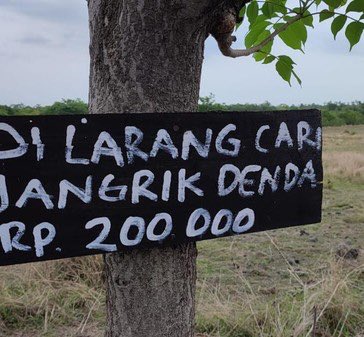 DI LARANG CARI
JANGRIK DENDA
RP. 200 000